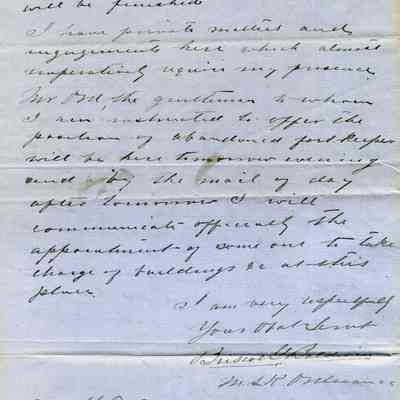 will be finished
I have private matters and
engagements here which almost
imperatively require my presence
Mr Ord, the gentleman to whom
I am instructed to offer the
position of abandoned fort keeper
will be here tomorrow evening
and by the mail of day
after tomorrow I will
communicate officially the
appointment of some one to take
charge of buildings &c at this
place.
I am very respectfully
Your Obdt Servt
Briscoe G Baldwin
M.S.K. Ordnance